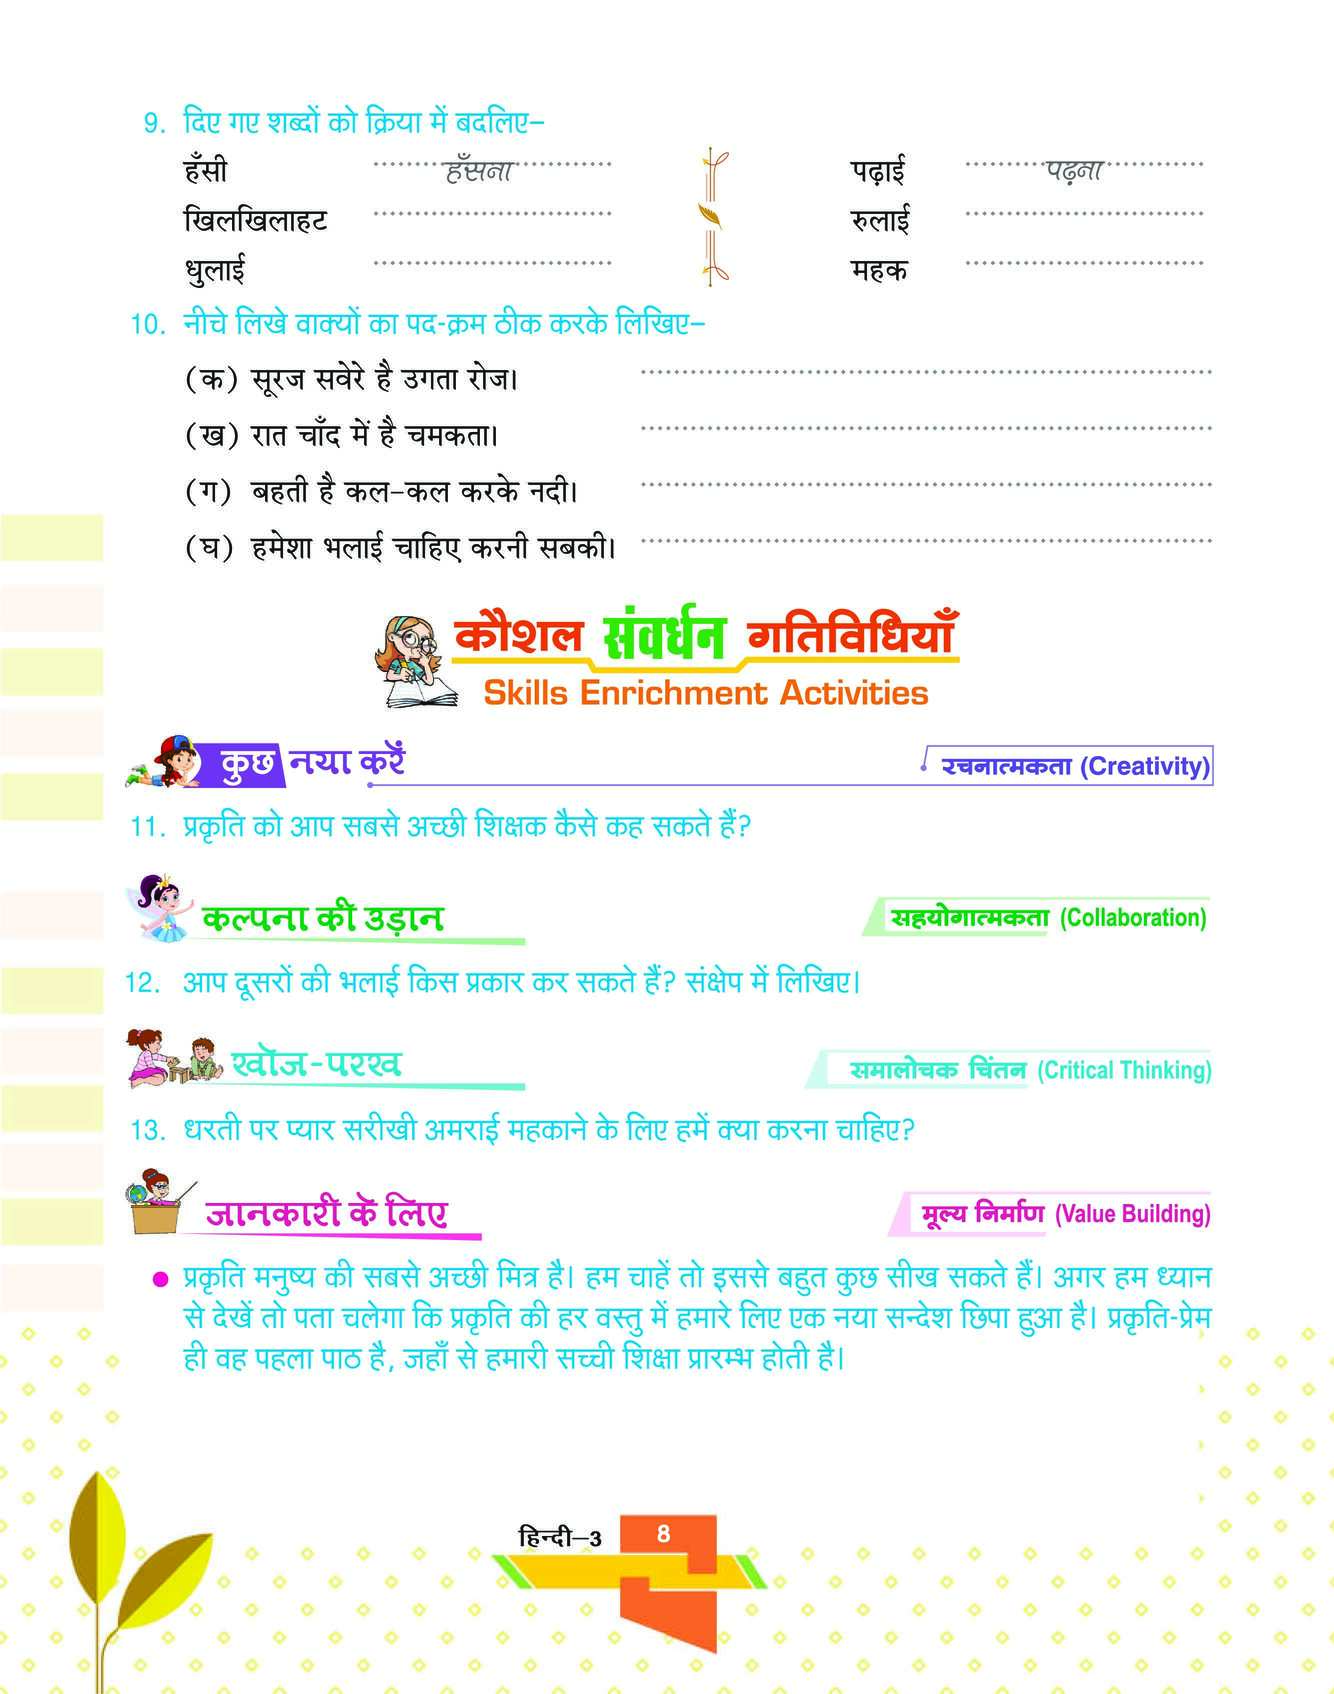 9. दिए गए शब्दों को क्रिया में बदलिए–
हँसी ........ हँसना ........ पढ़ाई ........ पढ़ना ........
खिलखिलाहट ........ रुलाई ........
धुलाई ........ महक ........
10. नीचे लिखे वाक्यों का पद-क्रम ठीक करके लिखिए–
(क) सूरज सवेरे है उगता रोज। ........
(ख) रात चाँद में है चमकता। ........
(ग) बहती है कल-कल करके नदी। ........
(घ) हमेशा भलाई चाहिए करनी सबकी। ........
कौशल संवर्धन गतिविधियाँ
Skills Enrichment Activities
कुछ नया करें रचनात्मकता (Creativity)
11. प्रकृति को आप सबसे अच्छी शिक्षक कैसे कह सकते हैं?
कल्पना की उड़ान सहयोगात्मकता (Collaboration)
12. आप दूसरों की भलाई किस प्रकार कर सकते हैं? संक्षेप में लिखिए।
खोज-परख समालोचक चिंतन (Critical Thinking)
13. धरती पर प्यार सरीखी अमराई महकाने के लिए हमें क्या करना चाहिए?
जानकारी के लिए मूल्य निर्माण (Value Building)
● प्रकृति मनुष्य की सबसे अच्छी मित्र है। हम चाहें तो इससे बहुत कुछ सीख सकते हैं। अगर हम ध्यान
से देखें तो पता चलेगा कि प्रकृति की हर वस्तु में हमारे लिए एक नया सन्देश छिपा हुआ है। प्रकृति-प्रेम
ही वह पहला पाठ है, जहाँ से हमारी सच्ची शिक्षा प्रारम्भ होती है।
हिन्दी–3 8